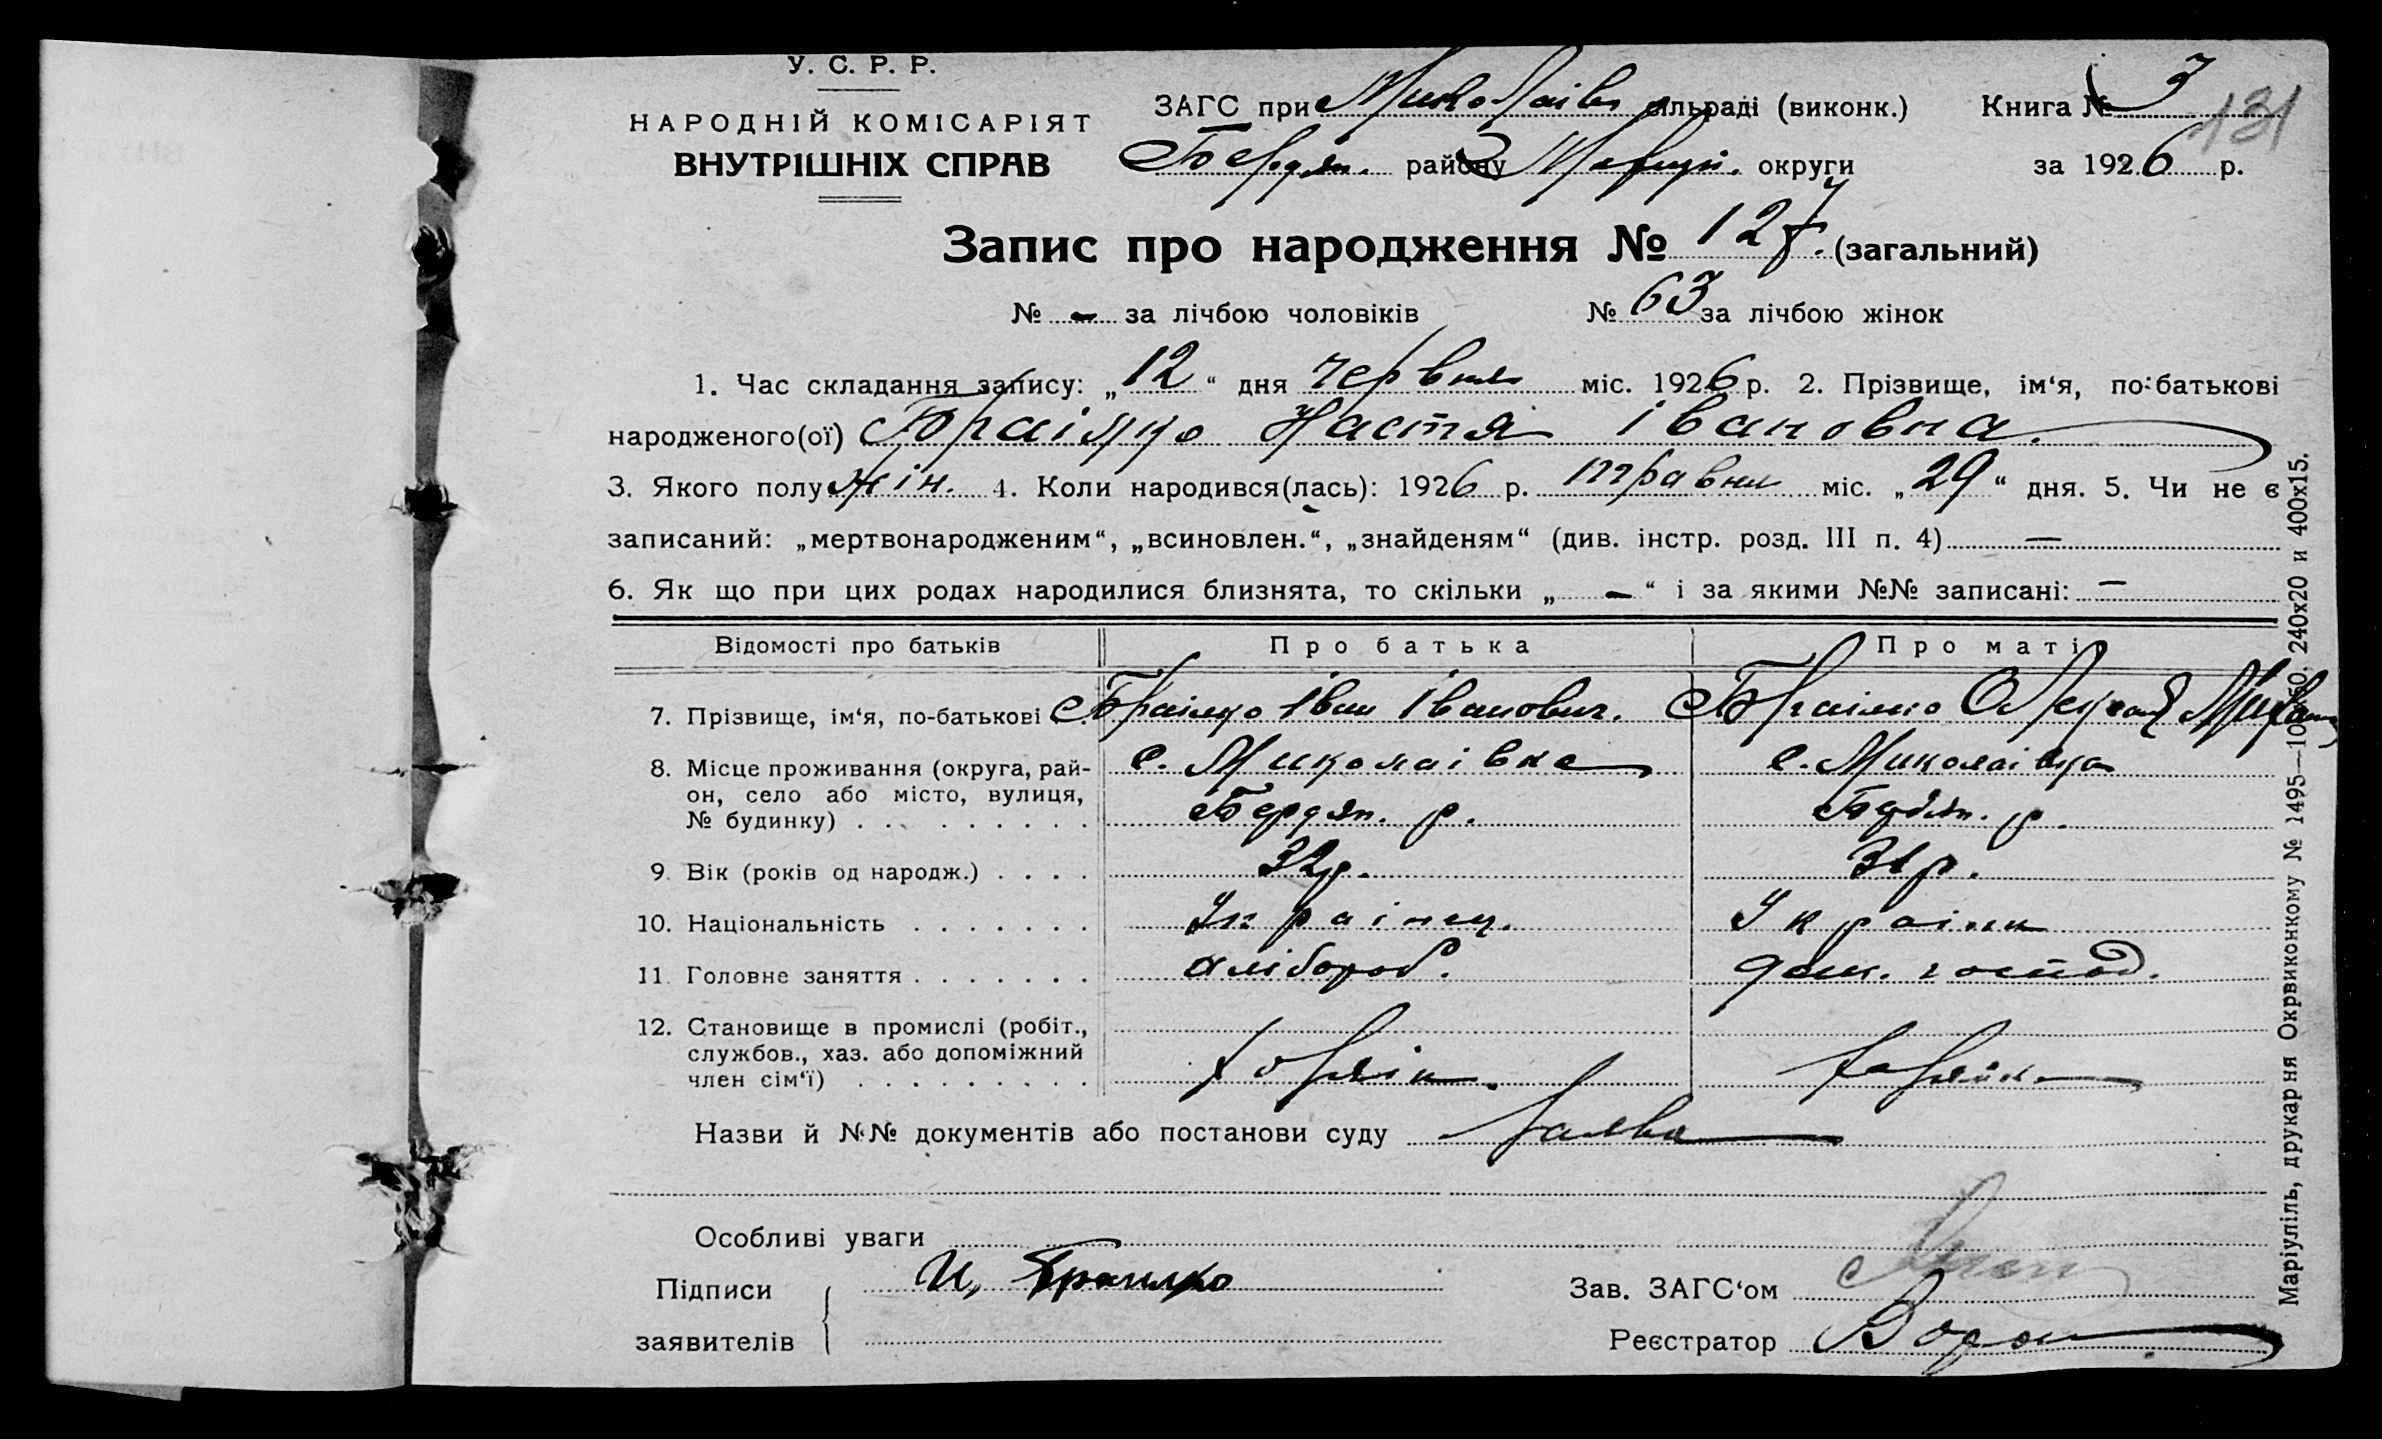 У. С. Р. Р.
НАРОДНІЙ КОМІСАРІЯТ
ВНУТРІШНІХ СПРАВ
ЗАГС при Миколаівс сільраді (виконк.) Книга № 3
131
Бердян. району Маріуп. округи за 1926 р.
Запис про народження № 127. (загальний)
№ - за лічбою чоловіків № 63 за лічбою жінок
1. Час складання запису: „12“ дня червня міс. 1926 р. 2. Прізвище, ім‘я, по-батькові
народженого(ої) Браілко Настя івановна.
3. Якого полу жін. 4. Коли народився(лась): 1926 р. травня міс. „29“ дня. 5. Чи не є
записаний: „мертвонародженим“, „всиновлен.“, „знайденям“ (див. інстр. розд. III п. 4) —
6. Як що при цих родах народилися близнята, то скільки „ - “ і за якими №№ записані: —
Відомості про батьків Про батька Про маті
7. Прізвище, ім‘я, по-батькові Браілко Іван Іванович. Браілко
8. Місце проживання (округа, рай-
он, село або місто, вулиця,
№ будинку) . . . . . . . . .
с. Миколаівка
Бердян. р.
с. Миколаівка
Бердян. р.
9. Вік (років од народж.) . . . . 32р. 31р.
10. Національність . . . . . . . Украінец. Украінка
11. Головне заняття . . . . . . . хлібороб. дом. господ.
12. Становище в промислі (робіт.,
службов., хаз. або допоміжний
член сім‘ї) . . . . . . . . .
хазяін.
хазяйка
Назви й №№ документів або постанови суду Заява
Особливі уваги
Підписи
заявителів
И, Браилко
Зав. ЗАГС‘ом
Реєстратор
Маріуліль, друкарня Окрвиконкому № 1495—100x50, 240x20 и 400x15.